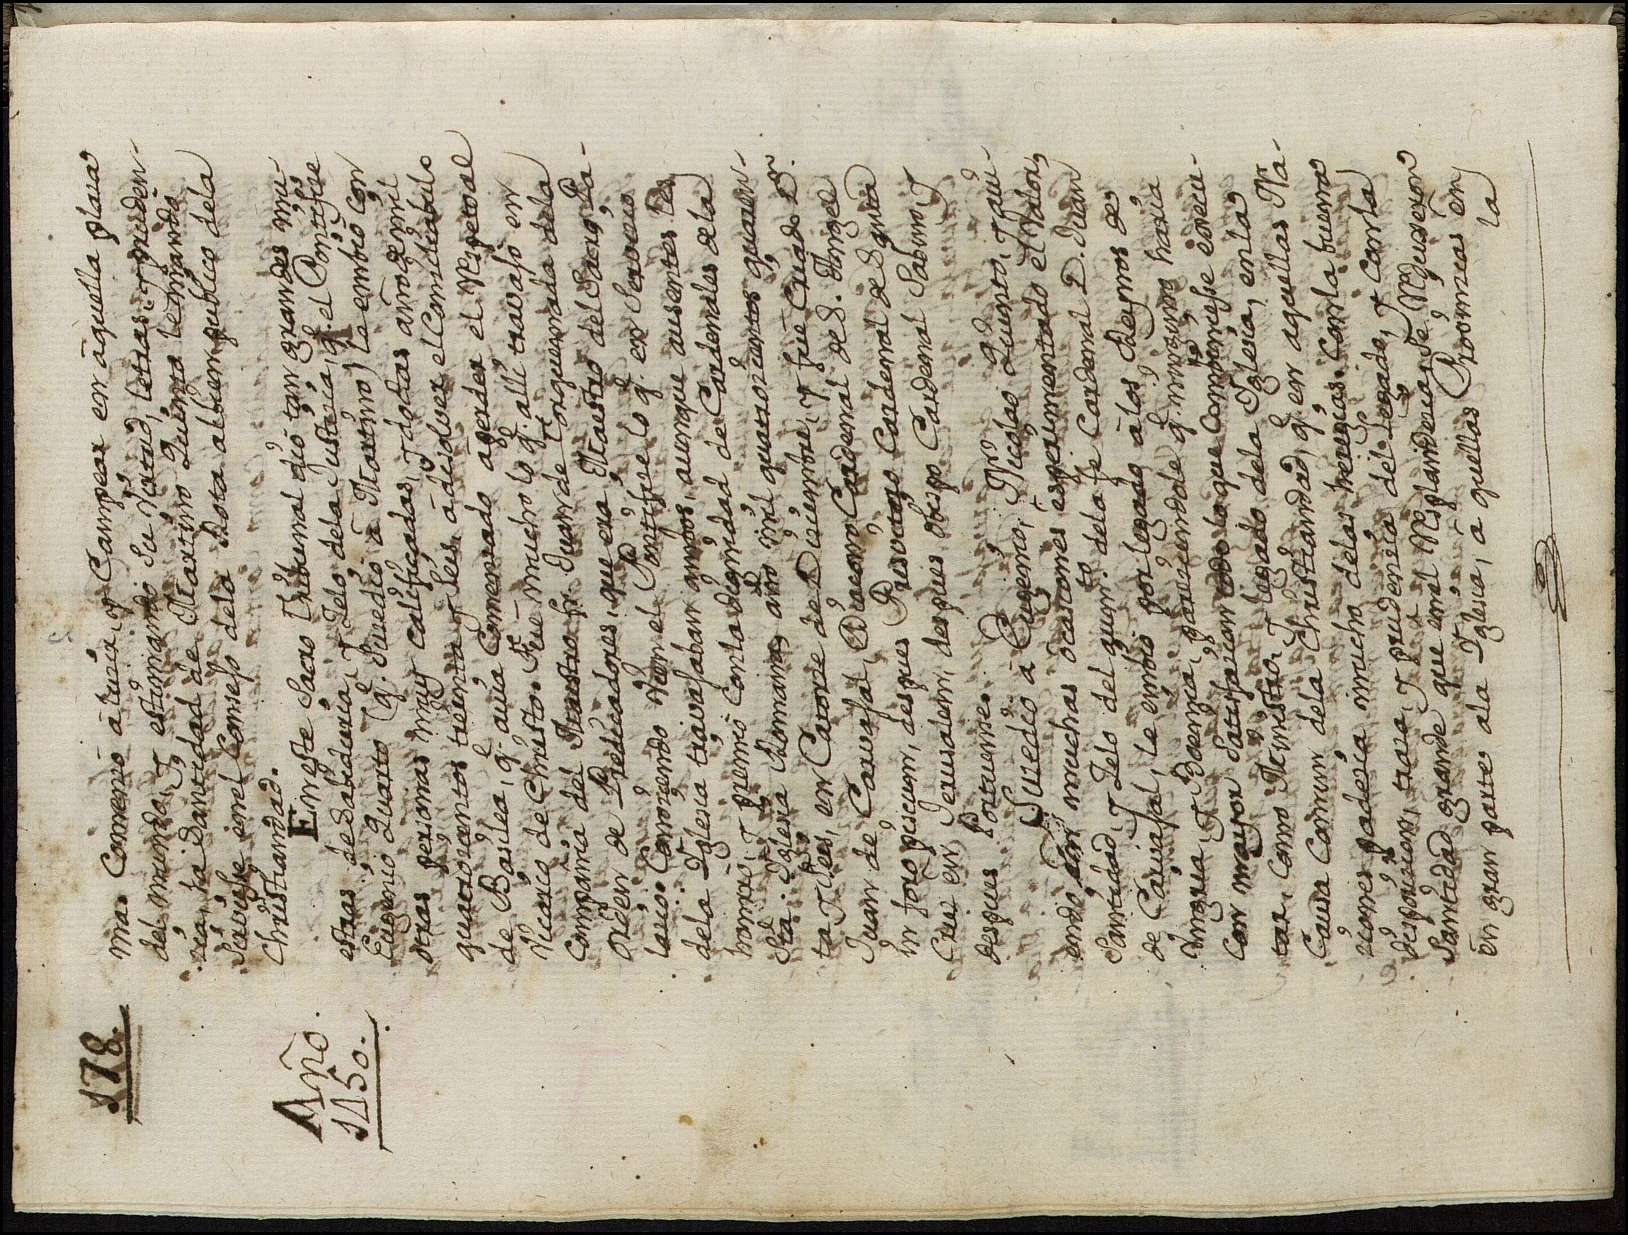 178.
mas Comenzò à lucir, y Campear en aquella plaza
del mundo, y estimando su Virtud, letras, y pruden-
cia, la Santidad de Martino Quinto le mandò
sirviese en el Consejo dela Rota al bien publico dela
Christiandad.
Año.
1450.
En este Sacro Tribunal diò tan grandes mu-
estras de Sabiduria, y Zelo dela Justicia, q.e el Pontifice
Eugenio Quarto (q.e Sucediò à Martino) le embiò con
otras personas muy calificadas, y doctas año de mil
quatrocientos treinta y seis à disolver el Conciliabulo
de Basilea, q.e avia Comenzado à perder el Respeto al
Vicario de Christo. Fue mucho lo q.e allí travajò en
Compañia del Maestro Fr. Juan de Torquemada dela
Orden de Predicadores, que era Maestro del Sacro Pa-
lacio. Conociendo bien el Pontifice lo q.e en servicio
dela Iglesia travajaban ambos, aunque ausentes les
honrrò, y premiò con la dignidad de Cardenales de la
S.ta Iglesia Romana, año mil quatrocientos quaren-
ta y seis, en Catorce de Diciembre, y fue Criado D.n
Juan de Carvajal, Diacono Cardenal de S. Angel
in foro piscium, despues Presvitero Cardenal de Santa
Cruz en Jerusalem, despues Obispo Cardenal Sabino, y
despues Portuense.
Sucediò à Eugenio, Nicolao Quinto, y havi-
endo en muchas ocasiones esperimentado el Valor,
Santidad, y Zelo del quin.to dela fe Cardenal D. Juan
de Carvajal, le embiò por legado à los Reynos de
Ungria, y Boemia, pareciendole q.e ninguno haria
con mayor satisfacion todo lo que Combiniese egecu-
tar, como Ministro, y legado dela Iglesia, en la
Causa Comun dela Christiandad, q.e en aquellas Na-
ciones padecia mucho delas heregias. Con la buena
disposicion, traza, y prudencia del Legado, y con la
Santidad grande que en el Resplandecia se Reduxeron
en gran parte ala Iglesia, aquellas Provincias en
la